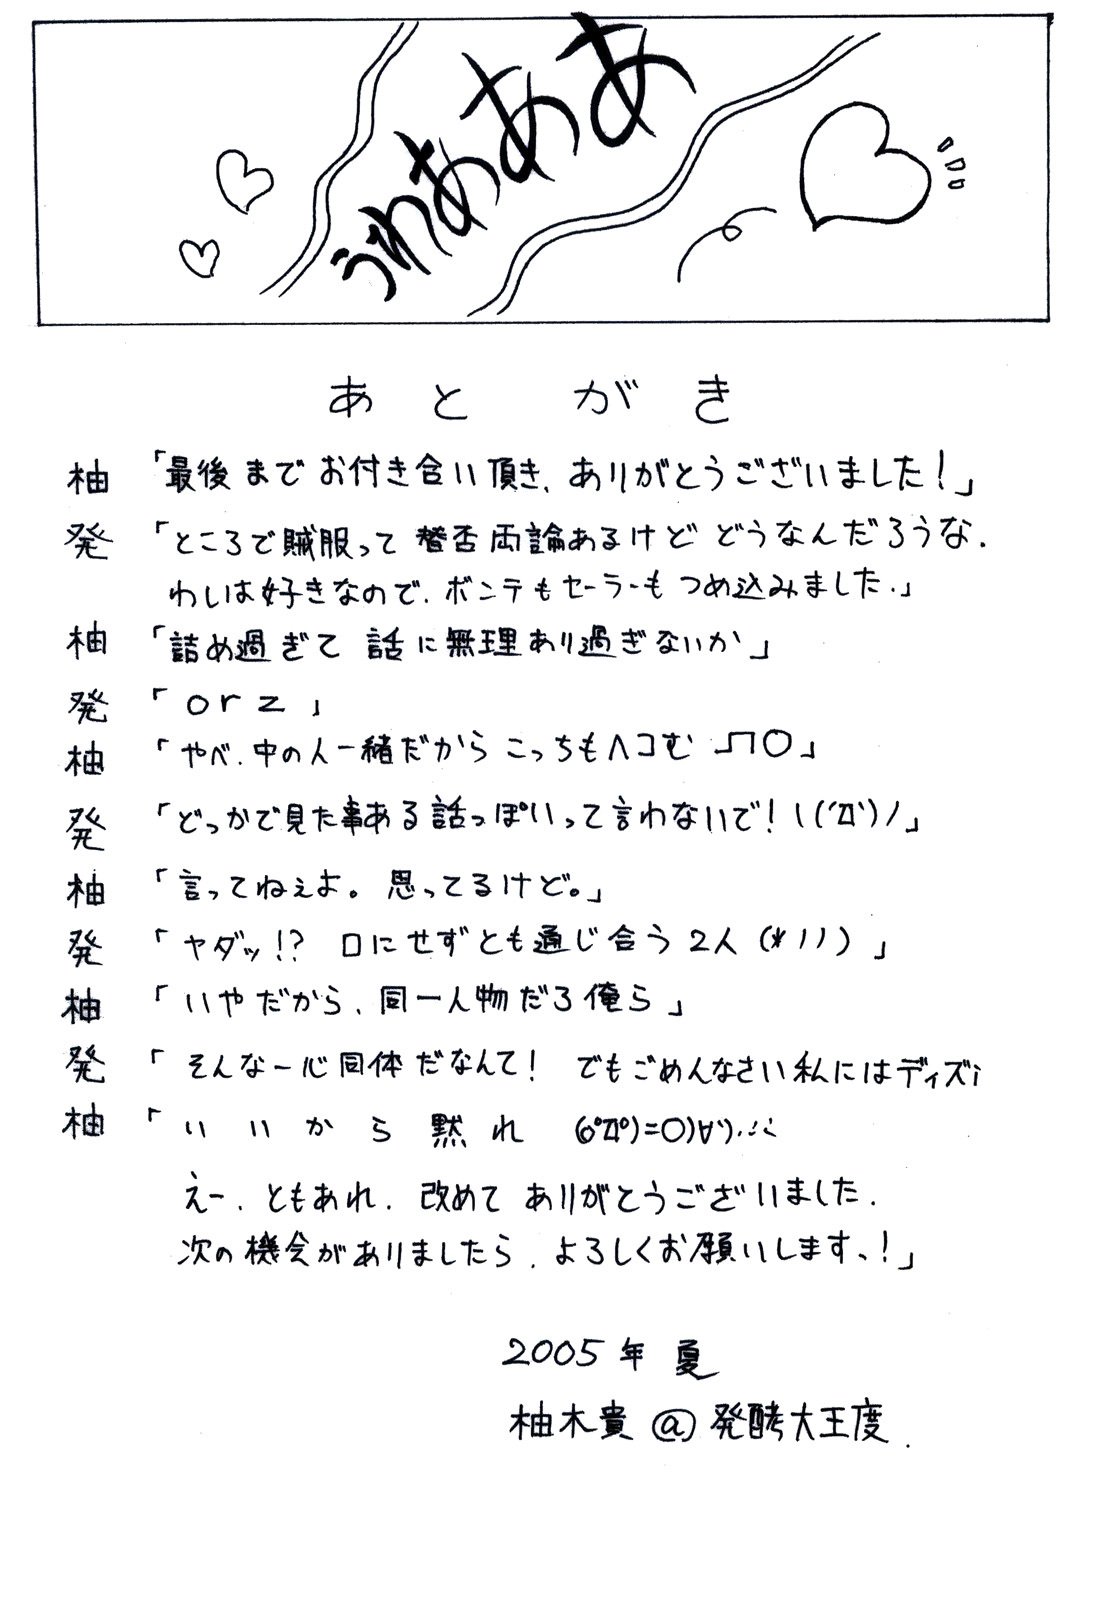 うわあああ
あとがき
柚「最後までお付き合い頂き、ありがとうございました！」
発「ところで賊服って賛否両論あるけどどうなんだろうな．
わしは好きなので．ボンテもセーラーもつめ込みました．」
柚「詰め過ぎて話に無理あり過ぎないか」
発「orz」
柚「やべ．中の人一緒だからこっちもヘコむ ＿|￣|○」
発「どっかで見た事ある話っぽいって言わないで！ヽ(´Д`)ノ」
柚「言ってねぇよ。思ってるけど。」
発「ヤダッ!? 口にせずとも通じ合う2人 (*ノノ)」
柚「いやだから、同一人物だろ俺ら」
発「そんな一心同体だなんて！ でもごめんなさい私にはディズi
柚「いいから黙れ (oﾟДﾟ)=O)∀`)．∵
えー．ともあれ．改めてありがとうございました．
次の機会がありましたら．よろしくお願いします、！」
2005年 夏
柚木貴＠発酵大王度．